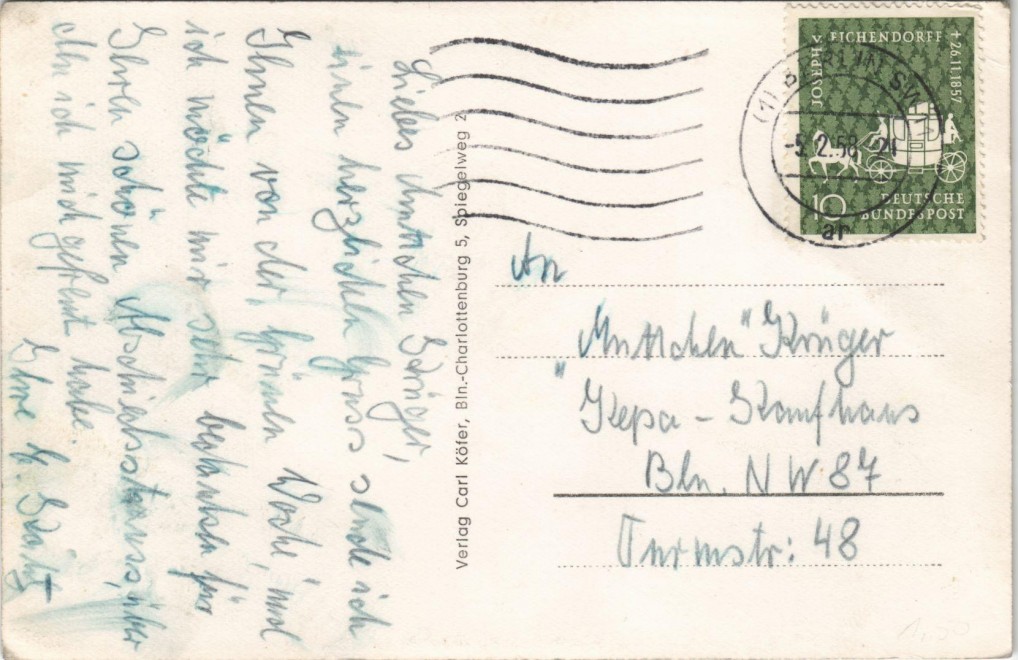 Liebes Muttchen Krüger,
einen herzlichen Gruss sende ich
Ihnen von der "Grünen Woche", und
ich möchte mir sehr bedanken für
Ihren schönen Abschiedsstrauss, über
den ich mich gefreut habe.
Ihre
Verlag Carl Köfer, Bln.-Charlottenburg 5, Spiegelweg 2
JOSEPH v. EICHENDORFF + 26.11.1857
10 DEUTSCHE BUNDESPOST
(1) BERLIN SW
-5.2.58-21
ar
An
"Muttchen" Krüger
Kepa - Kaufhaus
Bln. NW 87
Turmstr: 48
1,50